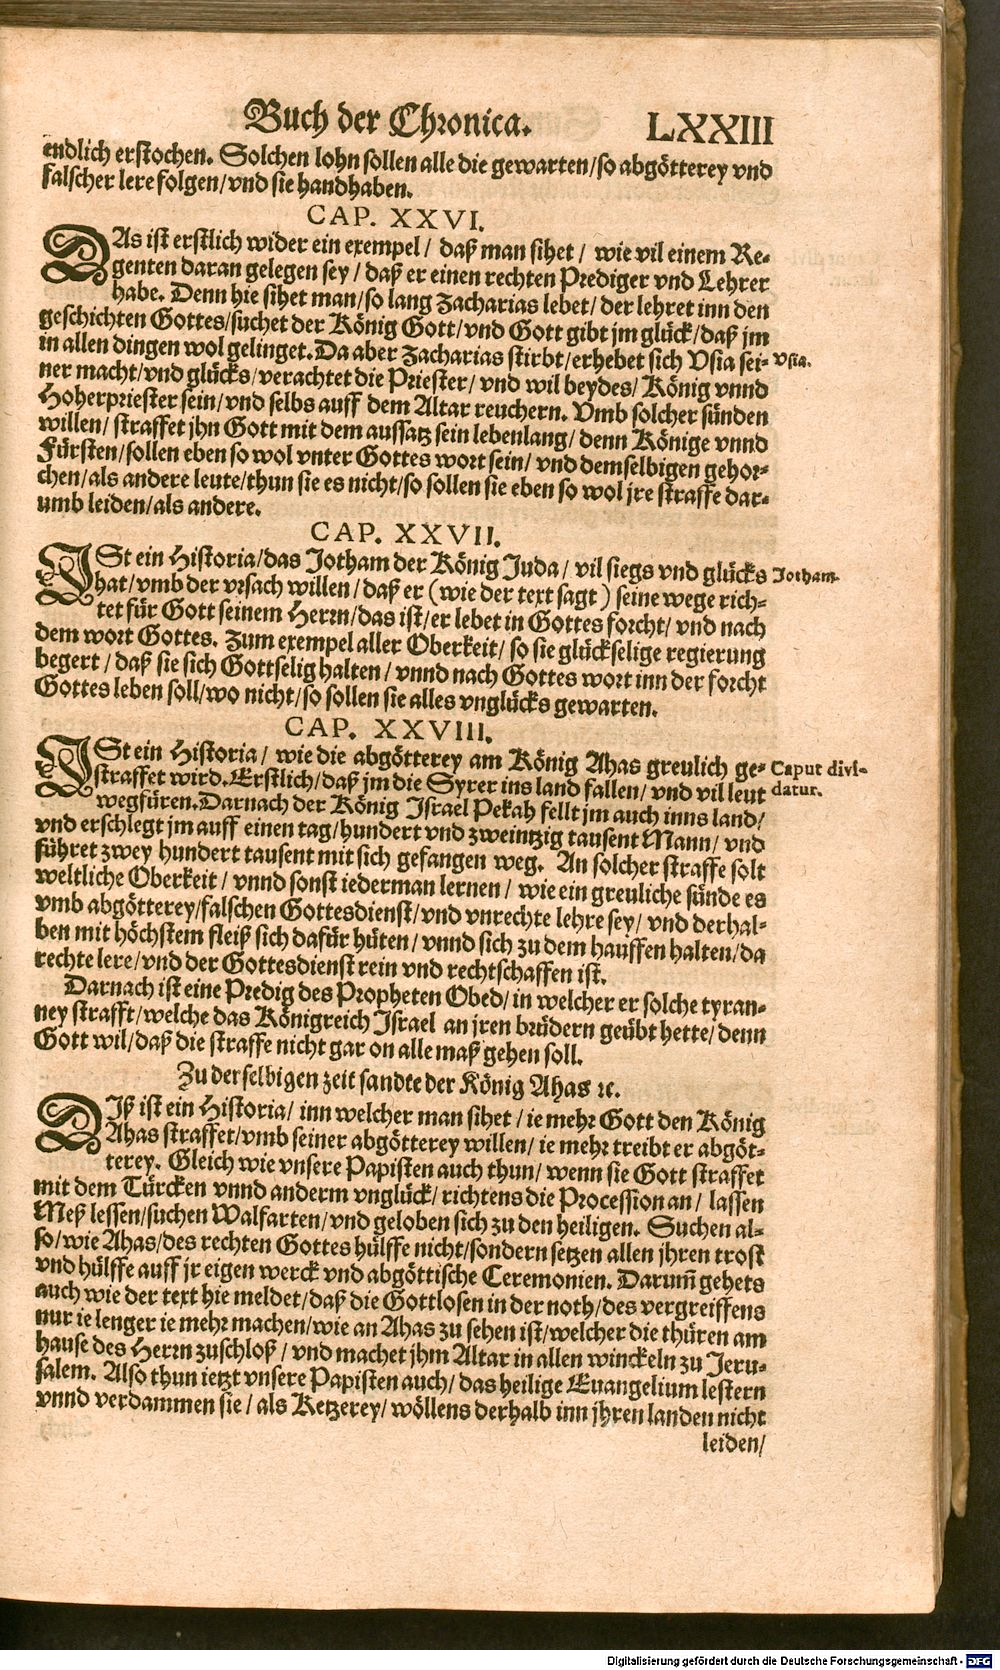 Buch der Chronica. LXXIII
endlich erstochen. Solchen lohn sollen alle die gewarten/so abgötterey vnd
falscher lere folgen/vnd sie handhaben.
CAP. XXVI.
DAs ist erstlich wider ein exempel/ daß man sihet/ wie vil einem Re-
genten daran gelegen sey/ daß er einen rechten Prediger vnd Lehrer
habe. Denn hie sihet man/so lang Zacharias lebet/ der lehret inn den
geschichten Gottes/suchet der König Gott/vnd Gott gibt jm glück/daß jm
in allen dingen wol gelinget. Da aber Zacharias stirbt/erhebet sich Vsia sei-
Vsia.
ner macht/vnd glücks/verachtet die Priester/ vnd wil beydes/ König vnnd
Hoherpriester sein/vnd selbs auff dem Altar reuchern. Vmb solcher sünden
willen/ straffet jhn Gott mit dem aussatz sein lebenlang/ denn Könige vnnd
Fürsten/sollen eben so wol vnter Gottes wort sein/ vnd demselbigen gehor-
chen/als andere leute/thun sie es nicht/so sollen sie eben so wol jre straffe dar-
umb leiden/als andere.
CAP. XXVII.
ISt ein Historia/das Jotham der König Juda/ vil siegs vnd glücks
Jotham.
hat/vmb der vrsach willen/ daß er (wie der text sagt) seine wege rich-
tet für Gott seinem Herrn/das ist/er lebet in Gottes forcht/ vnd nach
dem wort Gottes. Zum exempel aller Oberkeit/ so sie glückselige regierung
begert/ daß sie sich Gottselig halten/ vnnd nach Gottes wort inn der forcht
Gottes leben soll/wo nicht/so sollen sie alles vnglücks gewarten.
CAP. XXVIII.
ISt ein Historia/ wie die abgötterey am König Ahas greulich ge-
Caput divi-
straffet wird. Erstlich/daß jm die Syrer ins land fallen/ vnd vil leut
datur.
wegfüren. Darnach der König Israel Pekah fellt jm auch inns land/
vnd erschlegt jm auff einen tag/hundert vnd zweintzig tausent Mann/ vnd
führet zwey hundert tausent mit sich gefangen weg. An solcher straffe solt
weltliche Oberkeit/ vnnd sonst iederman lernen/ wie ein greuliche sünde es
vmb abgötterey/falschen Gottesdienst/vnd vnrechte lehre sey/ vnd derhal-
ben mit höchstem fleiß sich dafür hüten/ vnnd sich zu dem hauffen halten/da
rechte lere/vnd der Gottesdienst rein vnd rechtschaffen ist.
Darnach ist eine Predig des Propheten Obed/in welcher er solche tyran-
ney strafft/welche das Königreich Israel an jren brüdern geübt hette/ denn
Gott wil/daß die straffe nicht gar on alle maß gehen soll.
Zu derselbigen zeit sandte der König Ahas ꝛc.
DIß ist ein Historia/ inn welcher man sihet/ ie mehr Gott den König
Ahas straffet/vmb seiner abgötterey willen/ ie mehr treibt er abgöt-
terey. Gleich wie vnsere Papisten auch thun/ wenn sie Gott straffet
mit dem Türcken vnnd anderm vnglück/ richtens die Procession an/ lassen
Meß lessen/suchen Walfarten/vnd geloben sich zu den heiligen. Suchen al-
so/wie Ahas/des rechten Gottes hülffe nicht/sondern setzen allen jhren trost
vnd hülffe auff jr eigen werck vnd abgöttische Ceremonien. Darum̃ gehets
auch wie der text hie meldet/daß die Gottlosen in der noth/des vergreiffens
nur ie lenger ie mehr machen/wie an Ahas zu sehen ist/welcher die thüren am
hause des Herrn zuschloß/ vnd machet jhm Altar in allen winckeln zu Jeru-
salem. Also thun ietzt vnsere Papisten auch/ das heilige Euangelium lestern
vnnd verdammen sie/ als Ketzerey/ wöllens derhalb inn jhren landen nicht
leiden/
Digitalisierung gefördert durch die Deutsche Forschungsgemeinschaft - DFG